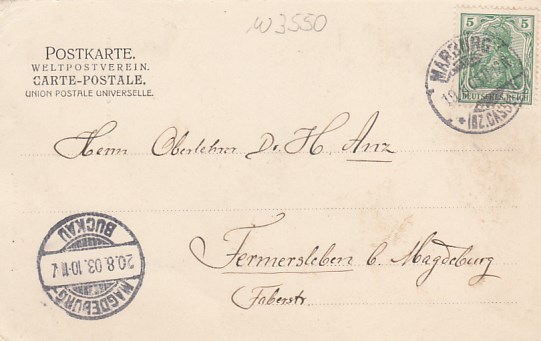 W3550
POSTKARTE.
WELTPOSTVEREIN.
CARTE-POSTALE.
UNION POSTALE UNIVERSELLE.
5 5
DEUTSCHES REICH
MARBURG
(BZ.CASSEL)
Herrn Oberlehrer Dr. H. Anz
Fermersleben b. Magdeburg
Faberstr.
MAGDEBURG-
20.8.03.10-11V
BUCKAU